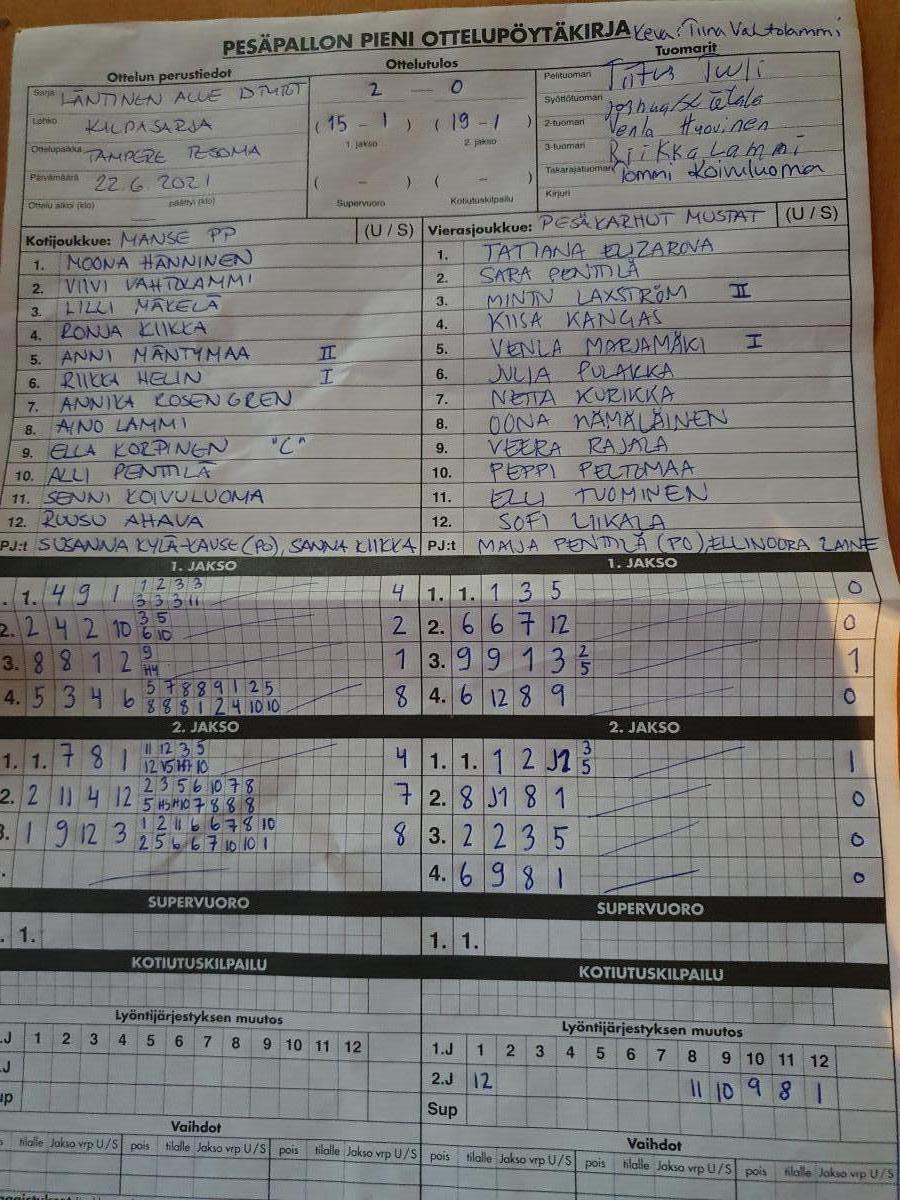 PESÄPALLON PIENI OTTELUPÖYTÄKIRJA
Keva: Tiina Vahtolammi
Ottelun perustiedot
Ottelutulos
Tuomarit
Sarja LÄNTINEN ALUE D TYTÖT
2 — 0
Pelituomari Titus Tuuli
Lohko KILPASARJA
( 15 - 1 ) ( 19 - 1 )
1. jakso 2. jakso
Syöttötuomari
2-tuomari Venla Hyövinen
Ottelupaikka TAMPERE TESOMA
3-tuomari Riikka Lammi
Päivämäärä 22.6.2021
( - ) ( - )
Takarajatuomari Tommi Koivuluoma
Ottelu alkoi (klo) päättyi (klo)
Supervuoro Kotiutuskilpailu
Kirjuri
Kotijoukkue: MANSE PP (U / S)
1. MOONA HÄNNINEN
2. VIIVI VAHTOLAMMI
3. LILLI MÄKELÄ
4. RONJA KIIKKA
5. ANNI MÄNTYMAA II
6. RIIKKA HELIN I
7. ANNIKA ROSENGREN
8. AINO LAMMI
9. ELLA KORPINEN "C"
10. ALLI PENTTILÄ
11. SENNI KOIVULUOMA
12. RUUSU AHAVA
PJ:t SUSANNA KYLÄ-KAUSE (PO), SANNA KIIKKA
Vierasjoukkue: PESÄKARHUT MUSTAT (U / S)
1. TATIANA ELIZAROVA
2. SARA PENTTILÄ
3. MINTTU LAXSTRÖM II
4. KIISA KANGAS
5. VENLA MARJAMÄKI I
6. JULIA PULAKKA
7. NETTA KURIKKA
8. OONA HÄMÄLÄINEN
9. VEERA RAJALA
10. PEPPI PELTOMAA
11. ELLI TUOMINEN
12. SOFI LIIKALA
PJ:t MAIJA PENTTILÄ (PO), ELLINOORA LAINE
1. JAKSO
. 1. 4 9 1 1 2 3 3 4
3 3 3 11
2. 2 4 2 10 3 5 2
6 10
3. 8 8 1 2 9 1
H4
4. 5 3 4 6 5 7 8 8 9 1 2 5 8
8 8 8 1 2 4 10 10
1. JAKSO
1. 1. 1 3 5 0
2. 6 6 7 12 0
3. 9 9 1 3 2 1
5
4. 6 12 8 9 0
2. JAKSO
1. 1. 7 8 1 11 12 3 5 4
12 V5 H7 10
2. 2 11 4 12 2 3 5 6 10 7 8 7
5 H5 H10 7 8 8 8
3. 1 9 12 3 1 2 11 6 6 7 8 10 8
2 5 6 6 7 10 10 1
.
2. JAKSO
1. 1. 1 2 J2 3 1
5
2. 8 J1 8 1 0
3. 2 2 3 5 0
4. 6 9 8 1 0
SUPERVUORO
. 1.
SUPERVUORO
1. 1.
KOTIUTUSKILPAILU
KOTIUTUSKILPAILU
Lyöntijärjestyksen muutos
.J 1 2 3 4 5 6 7 8 9 10 11 12
.J
up
Lyöntijärjestyksen muutos
1.J 1 2 3 4 5 6 7 8 9 10 11 12
2.J 12 11 10 9 8 1
Sup
Vaihdot
tilalle Jakso vrp U/S pois tilalle Jakso vrp U/S pois tilalle Jakso vrp U/S
Vaihdot
pois tilalle Jakso vrp U/S pois tilalle Jakso vrp U/S pois tilalle Jakso vrp U/S